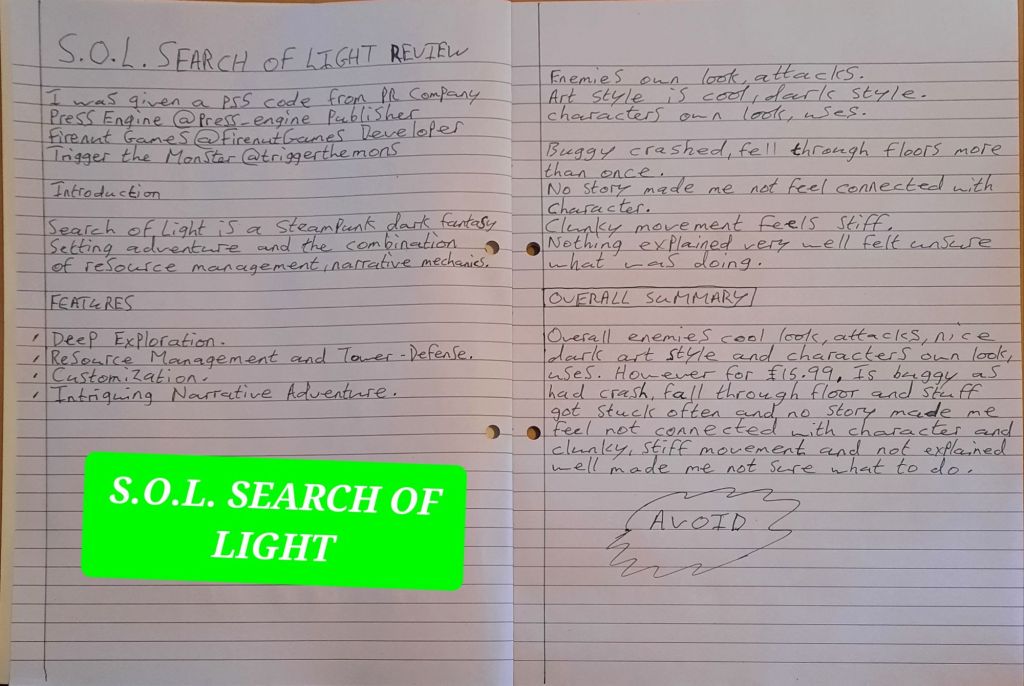 S.O.L. SEARCH OF LIGHT REVIEW
I was given a PS5 code from PR Company
Press Engine @Press_engine Publisher
Firenut Games @FirenutGames Developer
Trigger the Monster @triggerthemons
Introduction
Search of Light is a Steampunk dark fantasy
Setting adventure and the combination
of resource management, narrative mechanics.
FEATURES
Deep Exploration.
Resource Management and Tower-Defense.
Customization.
Intriguing Narrative Adventure.
S.O.L. SEARCH OF
LIGHT
Enemies own look, attacks.
Art style is cool, dark style.
characters own look, uses.
Buggy crashed, fell through floors more
than once.
No story made me not feel connected with
Character.
Clunky movement feels stiff.
Nothing explained very well felt unsure
what was doing.
OVERALL SUMMARY
Overall enemies cool look, attacks, nice
dark art style and characters own look,
uses. However for £15.99, Is buggy as
had crash, fall through floor and stuff
got stuck often and no story made me
feel not connected with character and
clunky, stiff movement and not explained
well made me not sure what to do.
AVOID